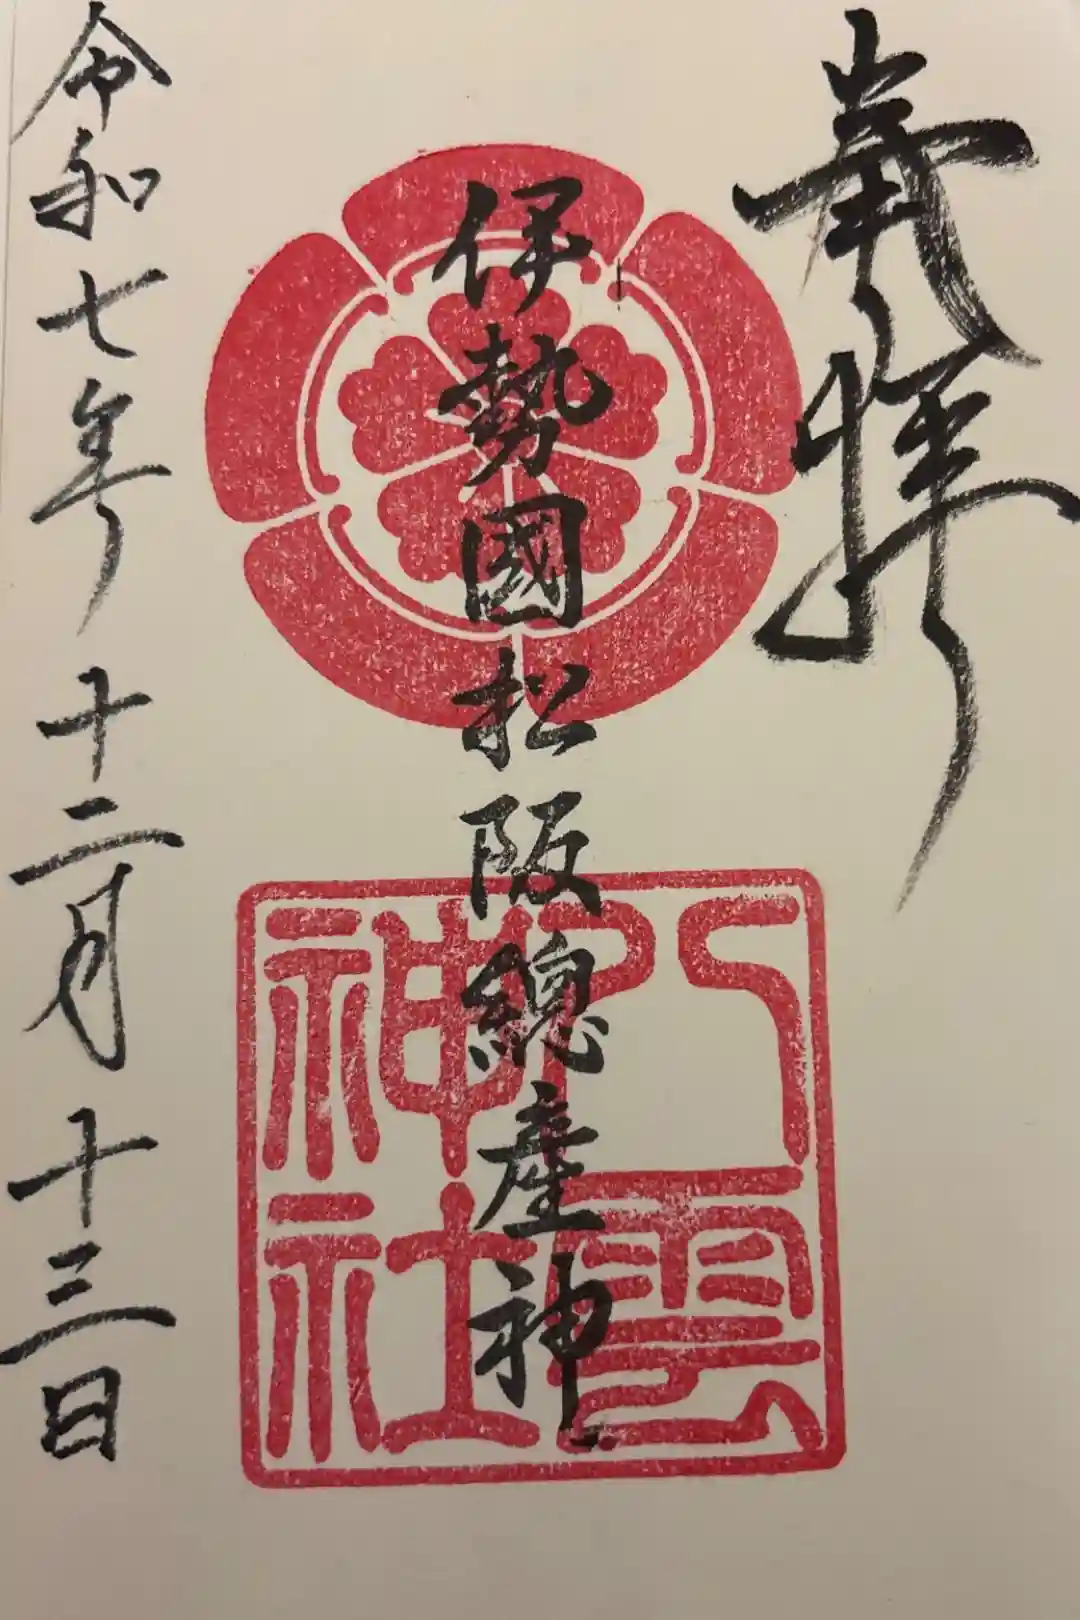 奉拝
伊勢國松阪總産神
八雲
神社
令和七年十二月十三日